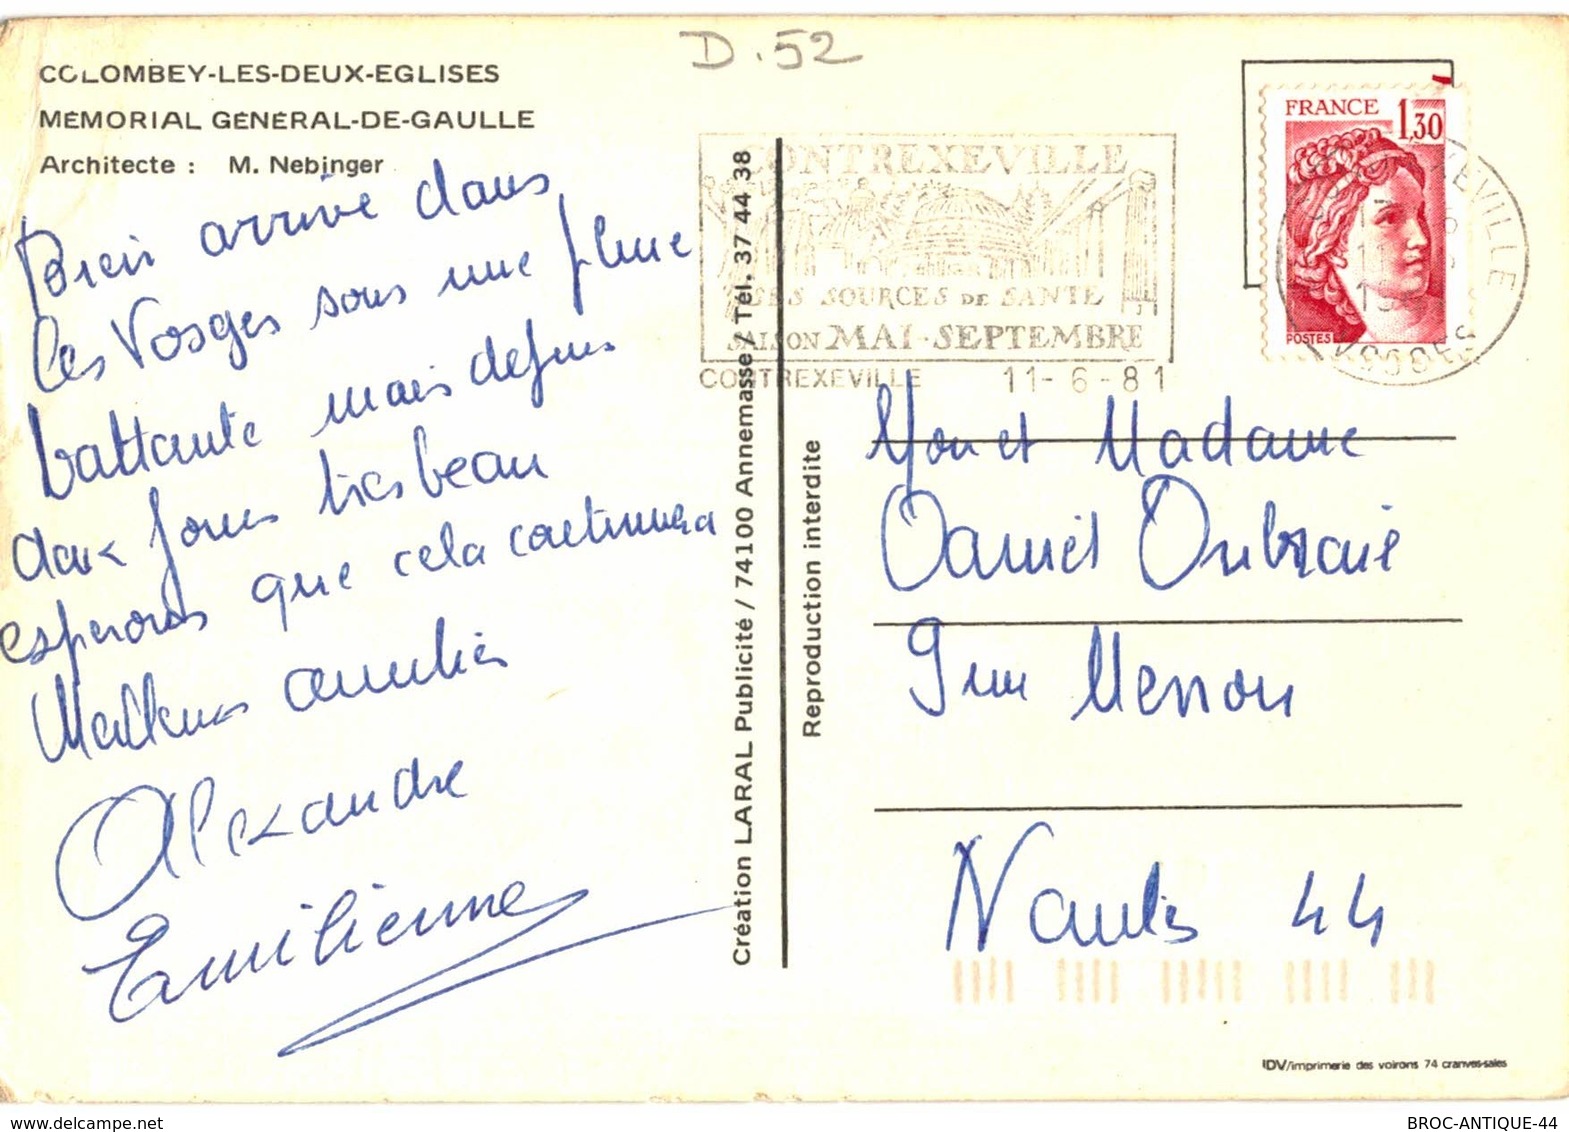 D.52
COLOMBEY-LES-DEUX-EGLISES
MEMORIAL GENERAL-DE-GAULLE
Architecte : M. Nebinger
Bien arrivé dans
les Vosges sous une pluie
battante mais depuis
deux jours très beau
esperons que cela continuera
Meilleures amitiés
Alexandre
Emilienne
Création LARAL Publicité / 74100 Annemasse / Tél. 37 44 38
Reproduction interdite
CONTREXEVILLE
SES SOURCES DE SANTE
SAISON MAI-SEPTEMBRE
CONTREXEVILLE 11-6-81
FRANCE 1,30
POSTES
VOSGES
Mon et Madame
Daniel
9 rue
Nantes 44
IDV/imprimerie des voirons 74 cranves-sales
BROC-ANTIQUE-44